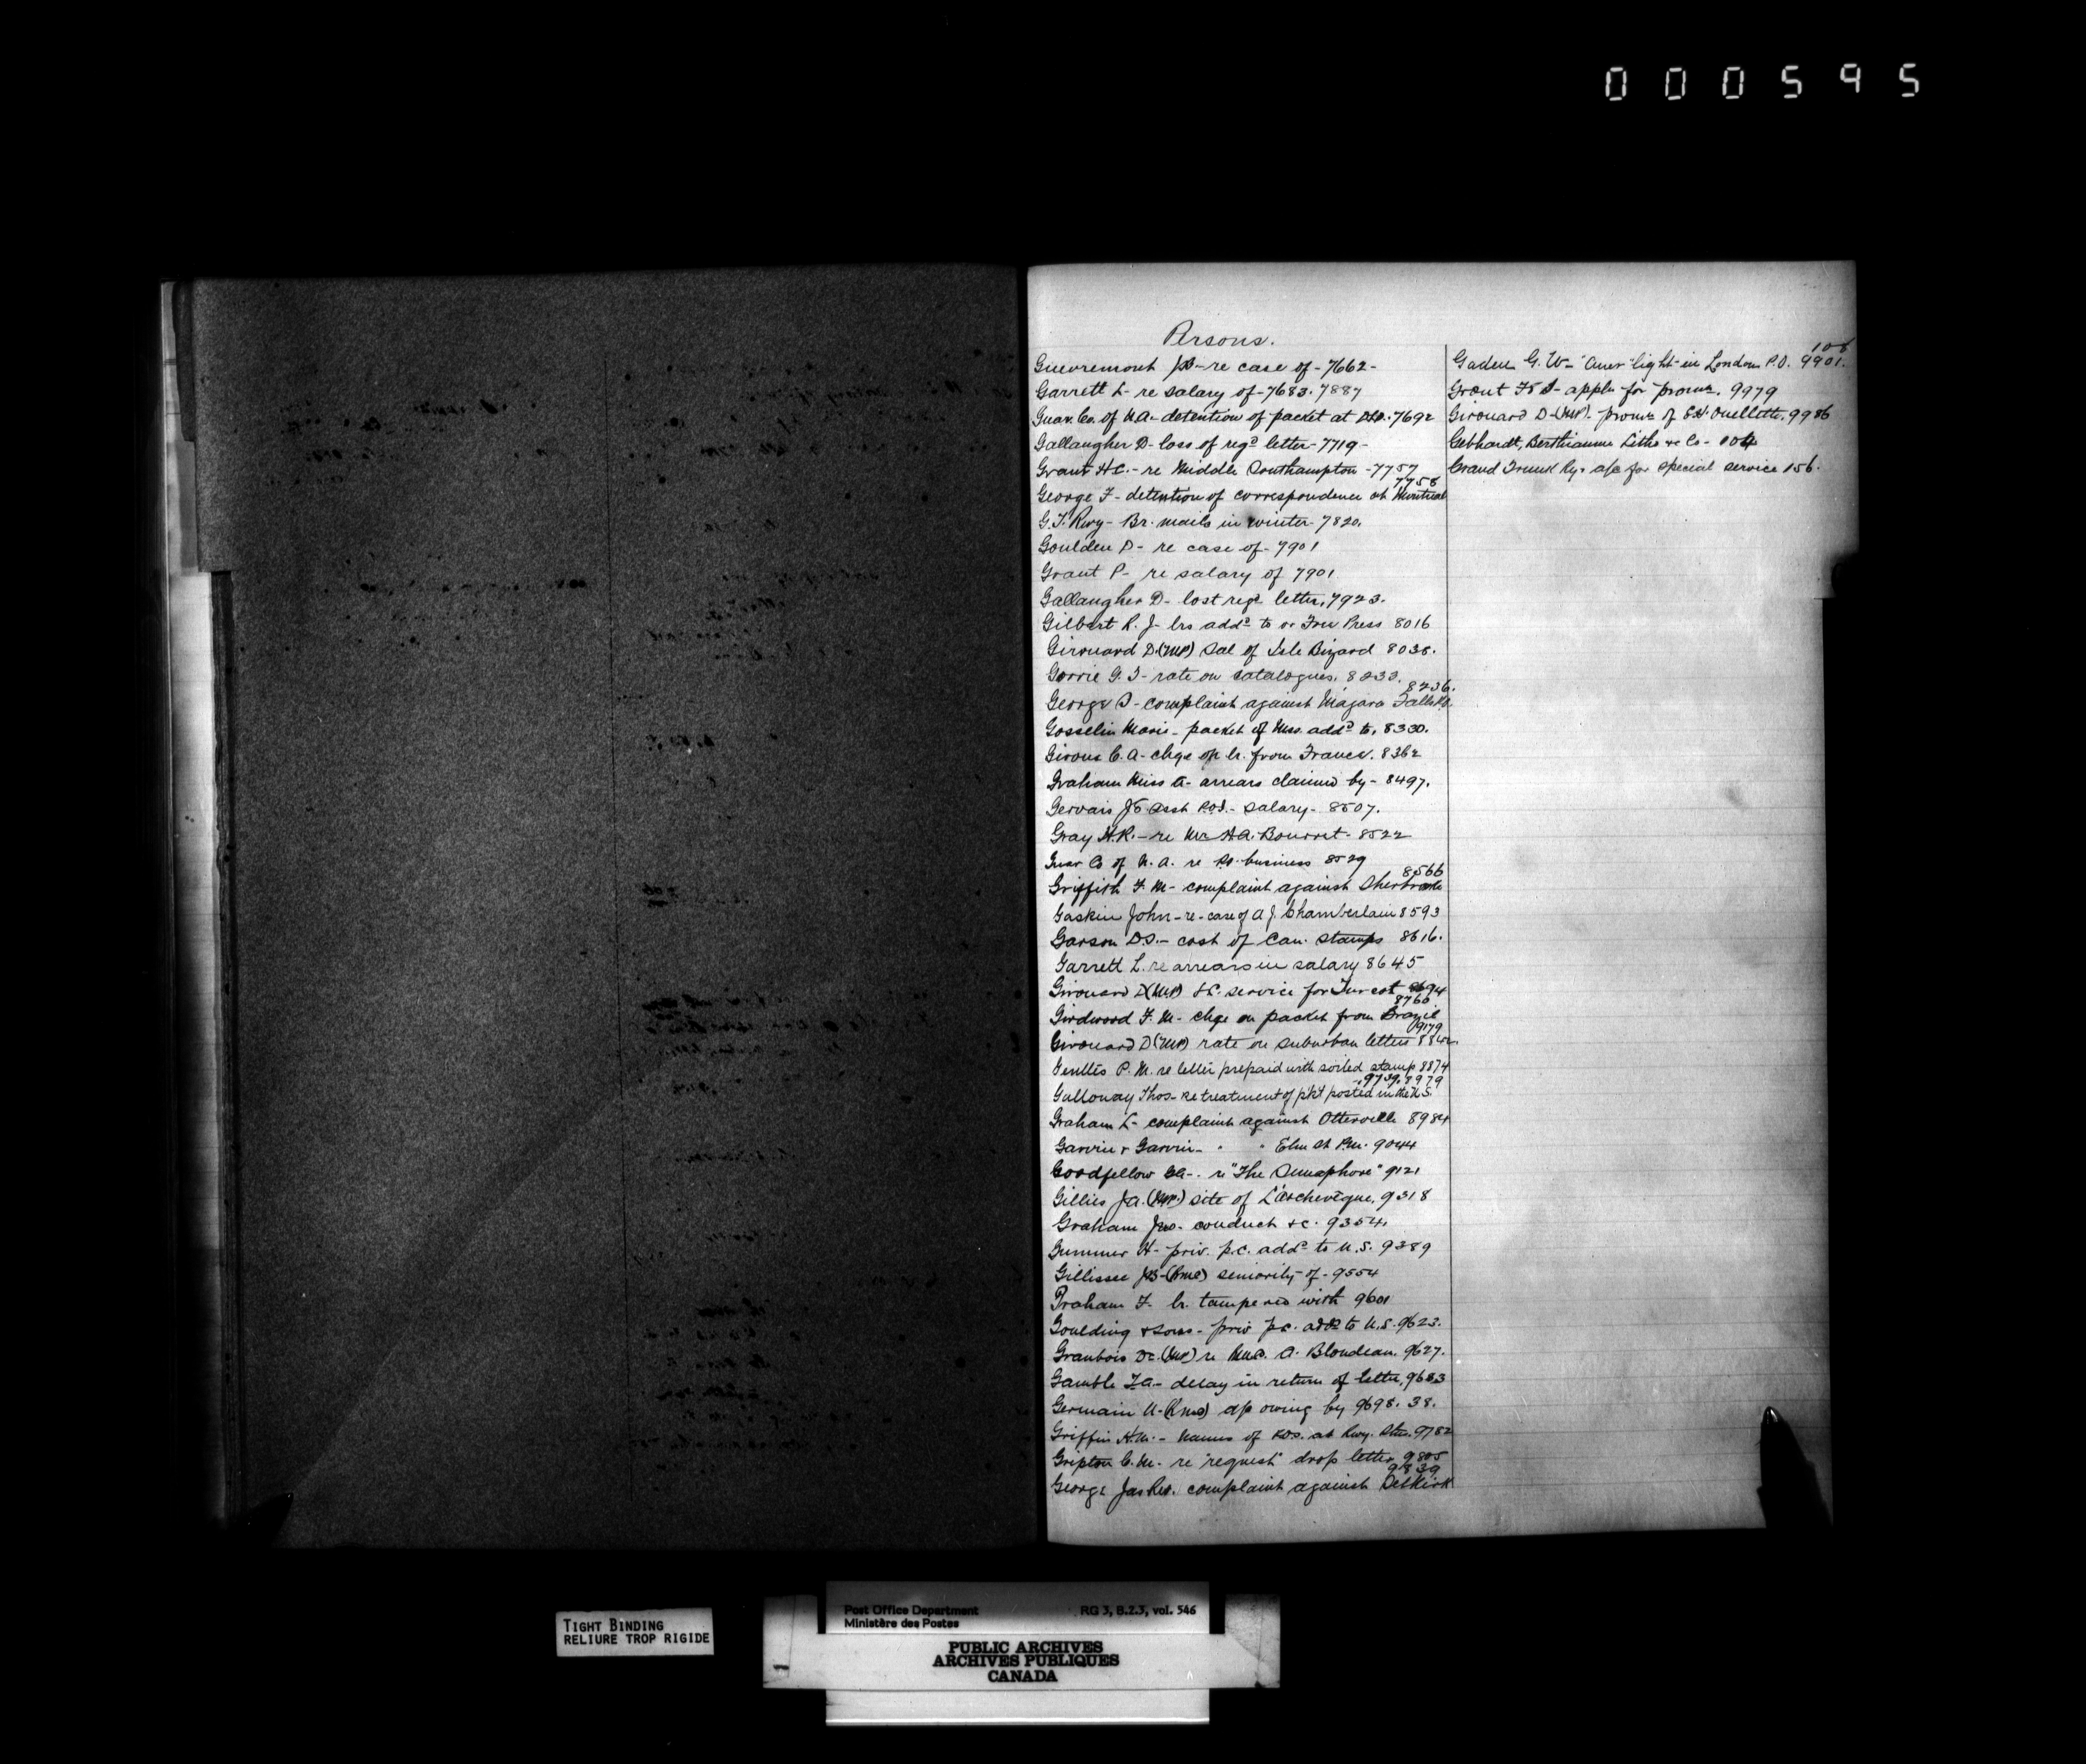 000595
Persons.
Guevremont JB - re case of - 7662 -
Garrett L - re salary of - 7683. 7887
Guar. Co. of N.A. - detention of packet at 7692
Gallaugher D - loss of regd letter - 7719 -
Grant H.C. - re Middle Southampton - 7757
7758
George F - detention of correspondence at Montreal
G.T. Rwy - Br. mails in winter - 7820.
Goulden D - re case of - 7901
Grant P - re salary of 7901
Gallaugher D - lost regd letter, 7923.
Gilbert R. J - lrs addd to Free Press 8016
Girouard D (M.P.) Sal of Isle Bizard 8038.
Gorrie G. T - rate on catalogues. 8233.
8236.
George S - complaint against Niagara Falls P.O.
Gosselin Marie - packet of Mss. addd to, 8330.
Giroux C. A - chge on lr. from France. 8362
Graham Miss A - arrears claimed by - 8497.
Gervais J Asst P.O.I. - salary - 8507.
Gray H.R. - re Mr H.A. Bourret - 8522
Guar Co of N. A. re business 8529
8566
Griffith F. M - complaint against Sherbrooke
Gaskin John - re - case of A J. Chamberlain 8593
Garson D.S. - cost of Can. stamps 8616.
Garrett L. re arrears in salary 8645
Girouard D (M.P.) service for Turcot 8694
8766
Girdwood F. M - chge on packet from Brazil
9179
Girouard D (M.P.) rate on suburban letters
Gentles P. M. re letter prepaid with soiled stamp 8874
9739. 8979
Galloway Thos - re treatment of pkt posted in the U.S.
Graham L - complaint against Otterville 8984
Garvin & Garvin - " " Elm St P.M. 9044
Goodfellow - re "The Semaphore" 9121
Gillies J.A. (M.P.) site of L'Archevêque, 9318
Graham Jno - conduct &c. 9354.
Gummer H - priv. p.c. addd to U.S. 9389
Gillissee JB - (RMC) seniority of - 9554
Graham F. lr. tampered with 9601
Goulding & Sons - priv p.c. addd to U.S. 9623.
Granbois Dr. (M.P.) re A. Blondeau. 9627.
Gamble F.A. - delay in return of letter, 9683
Germain U - (RMC) a/c owing by 9698. 38.
Griffin H.M. - names of P.O's. at Rwy. Stns. 9782
Gripton C.M. - re "request" drop letter 9805
9839
George Jas Rev. complaint against Selkirk
108
Gaden G. W - "Auer" light in London P.O. 9901.
Grout appln for promn. 9979
Girouard D - (M.P.). promn of Ouellette. 9986
Gebhardt, Berthiaume Litho &c Co - 104
Grand Trunk Ry. a/c for special service 156.
TIGHT BINDING
RELIURE TROP RIGIDE
Post Office Department RG 3, B.2.3, vol. 546
Ministère des Postes
PUBLIC ARCHIVES
ARCHIVES PUBLIQUES
CANADA